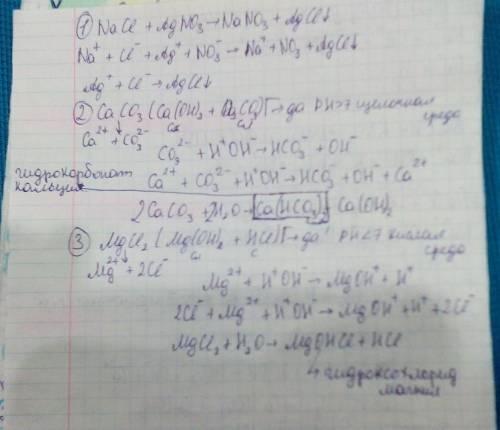 ① NaCl + AgNO₃ → NaNO₃ + AgCl↓
Na⁺ + Cl⁻ + Ag⁺ + NO₃⁻ → Na⁺ + NO₃ + AgCl↓
Ag⁺ + Cl⁻ → AgCl↓
② CaCO₃ (Ca(OH)₂ + H₂CO₃) Г → да PH>7 щелочная среда
Ca²⁺ + CO₃²⁻
CO₃²⁻ + H⁺OH⁻ → HCO₃⁻ + OH⁻
гидрокарбонат кальция
Ca²⁺ + CO₃²⁻ + H⁺OH⁻ → HCO₃⁻ + OH⁻ + Ca²⁺
2CaCO₃ + 2H₂O → Ca(HCO₃)₂ Ca(OH)₂
③ MgCl₂ (Mg(OH)₂ + HCl) Г → да PH<7 кислая среда
Mg²⁺ + 2Cl⁻
Mg²⁺ + H⁺OH⁻ → MgOH⁺ + H⁺
2Cl⁻ + Mg²⁺ + H⁺OH⁻ → MgOH⁺ + H⁺ + 2Cl⁻
MgCl₂ + H₂O → MgOHCl + HCl
↳ гидроксохлорид
магния